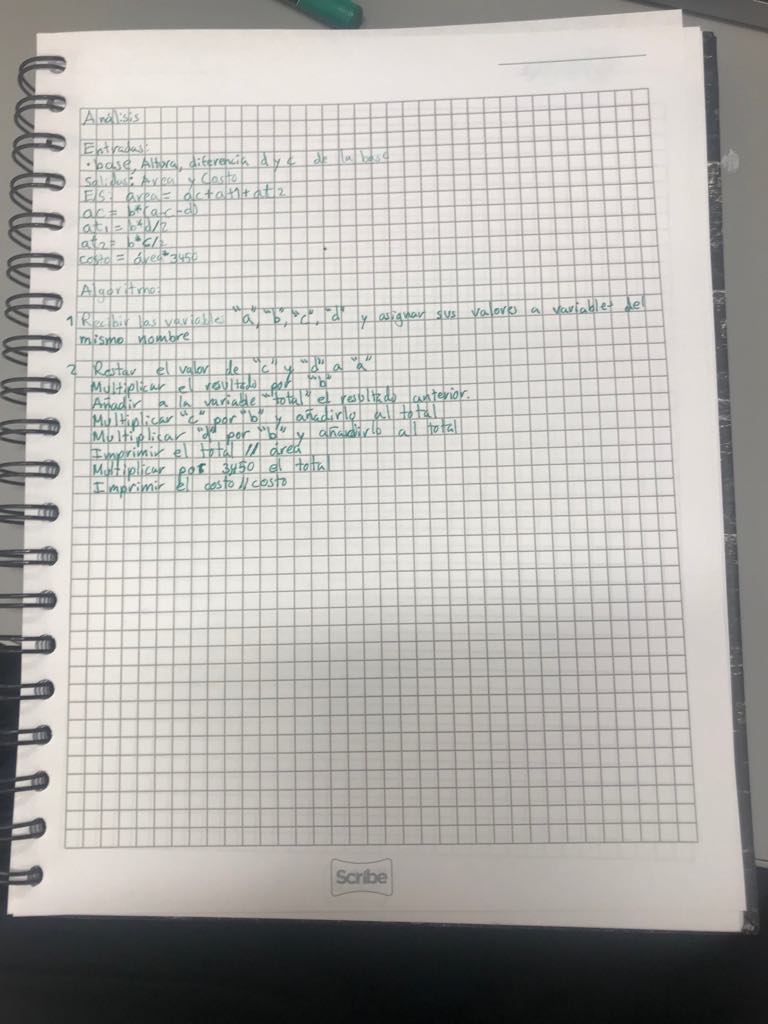 Análisis
Entradas:
• base, Altura, diferencia d y c de la base
Salidas: Area y Costo
E/S: area = ac + at1 + at2
ac = b*(a-c-d)
at1 = b*d/2
at2 = b*c/2
costo = área*3450
Algoritmo:
1 Recibir las variable "a", "b", "c", "d" y asignar sus valores a variables del
mismo nombre
2 Restar el valor de "c" y "d" a "a"
Multiplicar el resultado por "b"
Añadir a la variable "total" el resultado anterior.
Multiplicar "c" por "b" y añadirlo al total
Multiplicar "d" por "b" y añadirlo al total
Imprimir el total // área
Multiplicar por 3450 el total
Imprimir el costo // costo
Scribe